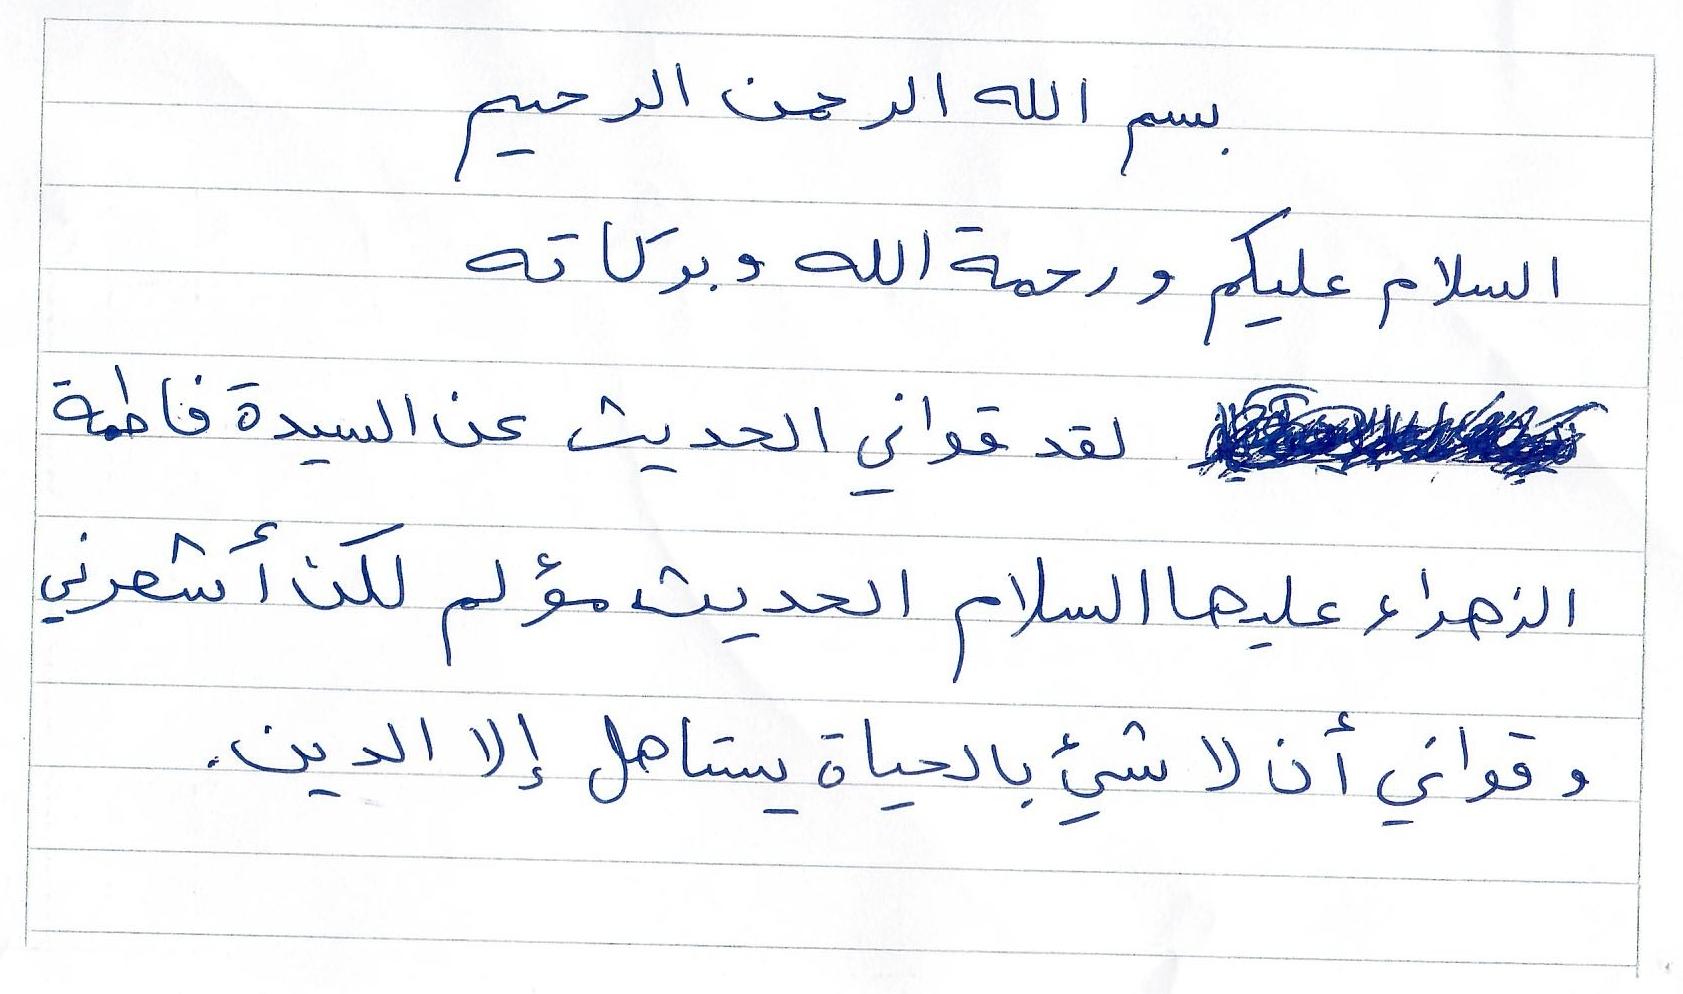 بسم الله الرحمن الرحيم
السلام عليكم ورحمة الله وبركاته
لقد قواني الحديث عن السيدة فاطمة
الزهراء عليها السلام الحديث مؤلم لكن أشعرني
وقواني أن لا شيئ بالحياة يستاهل إلا الدين.